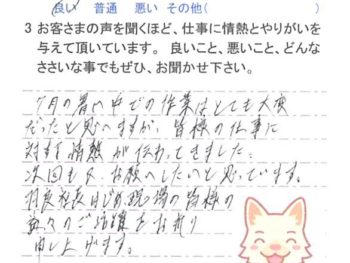 良い　普通　悪い　その他(　　　)
3 お客さまの声を聞くほど、仕事に情熱とやりがいを
与えて頂いています。 良いこと、悪いこと、どんな
ささいな事でもぜひ、お聞かせ下さい。
7月の暑い中での作業はとても大変
だったと思いますが、皆様の仕事に
対する情熱が伝わってきました。
次回も又、お願いしたいと思っています。
社長はじめ、現場の皆様の
益々のご活躍をお祈り
申し上げます。